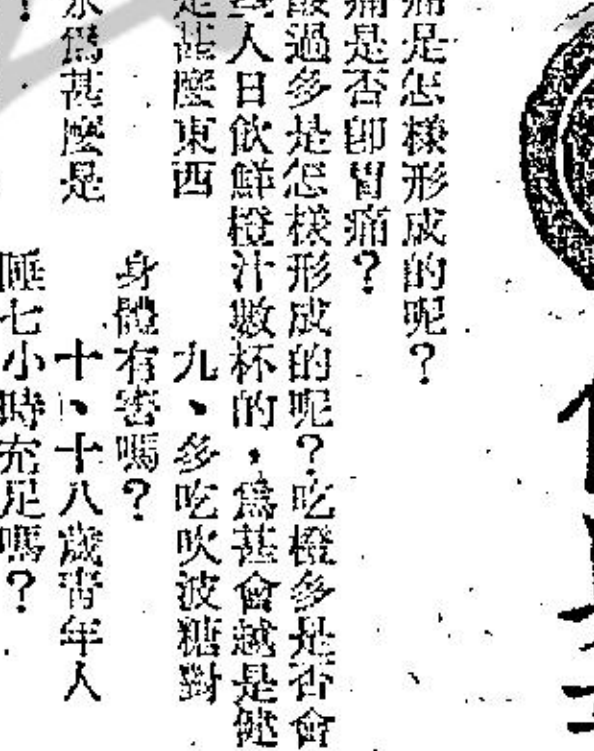 痛是怎樣形成的呢？
痛是否卽胃痛？
酸過多是怎樣形成的呢？吃橙多是否會
人日飲鮮橙汁數杯的，爲甚會越是健
是甚麼東西
九、多吃吹波糖對
身體有害嗎？
水爲甚麼是
十、十八歲青年人
睡七小時充足嗎？
？